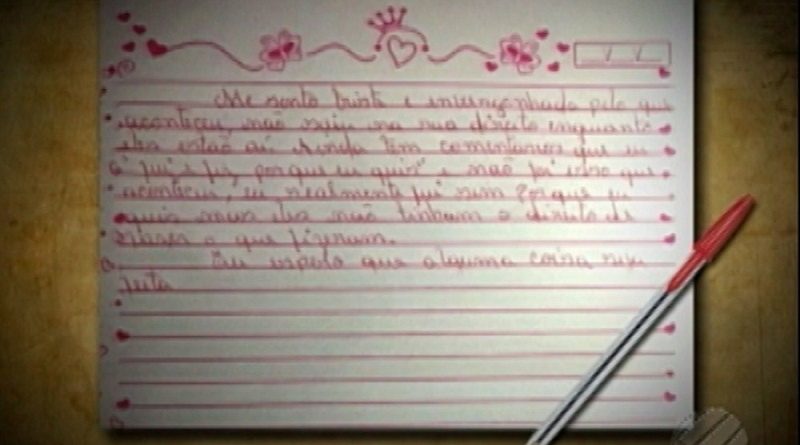 Me sento triste e invergonhada pelo que
aconteceu, não saiu na rua direito enquanto
eles estão aí Ainda tem comentarios que eu
"fui e fiz, porque eu quis" e não foi isso que
aconteceu, eu realmente fui sim porque eu
quis mas eles não tinham o direito de
fazer o que fizeram.
Eu espero que alguma coisa seja
feita